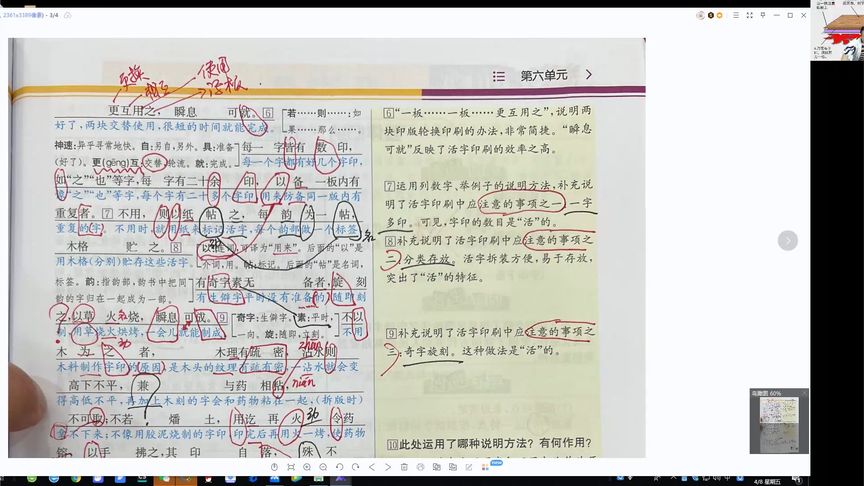 2361x3189像素) - 3/4
第六单元
更换
使用
活板
更互用之，瞬息 可就。⑥ 若……则……：如
好了，两块交替使用，很短的时间就能完成 果……那么……。
神速：异乎寻常地快。自：另自，另外。具：准备 每一字皆有数印，
(好了)。更(gēng)互：交替，轮流。就：完成。 每一个字都有好几个字印，
如“之”“也”等字，每 字有二十余 印，以备 一板内有
像“之”“也”等字，每个字有二十多个字印，用来防备同一版内有
重复者。⑦ 不用，则以纸 帖 之，每 韵 为一 帖，
重复的字。不用时，就用纸来标记活字，每个韵部做一个标签
名
木格 贮 之。⑧
用木格(分别)贮存这些活字。 介词，可译为“用来”。后面的“以”是
介词，用。帖：标记。后面的“帖”是名词，
标签。韵：指韵部，韵书中把同 有奇字素无 备者，旋 刻
韵的字归在一起成为一部。 有生僻字平时没有准备的，随即刻
之，以草 火烧，瞬息可成。⑨ 奇字：生僻字。素：平时，不以
制，用草烧火烘烤，一会儿就能制成 一向。旋：随即，立刻。 不用
木 为 之 者， 木理有疏 密，沾水则
木料制作字印的原因，是木头的纹理有疏有密，一沾水就会变
高下不平，兼 与药 相粘，
nián
得高低不平，再加上木刻的字会和药物粘在一起，(拆版时)
不可取；不若 燔 土，用讫 再 火 令药
拿不下来；不像用胶泥烧制的字印，印完后再用火一烤，使药物
熔，以手 拂之，其 印 自 落，殊 不
⑥“一板……一板……更互用之”，说明两
块印版轮换印刷的办法，非常简捷。“瞬息
可就”反映了活字印刷的效率之高。
⑦运用列数字、举例子的说明方法，补充说
明了活字印刷中应注意的事项之一：一字
多印。可见，字印的数目是“活”的。
⑧补充说明了活字印刷中应注意的事项之
二：分类存放。活字拆装方便，易于存放，
突出了“活”的特征。
⑨补充说明了活字印刷中应注意的事项之
三：奇字旋刻。这种做法是“活”的。
⑩此处运用了哪种说明方法？有何作用？
鸟瞰图 60%
4/8 星期五